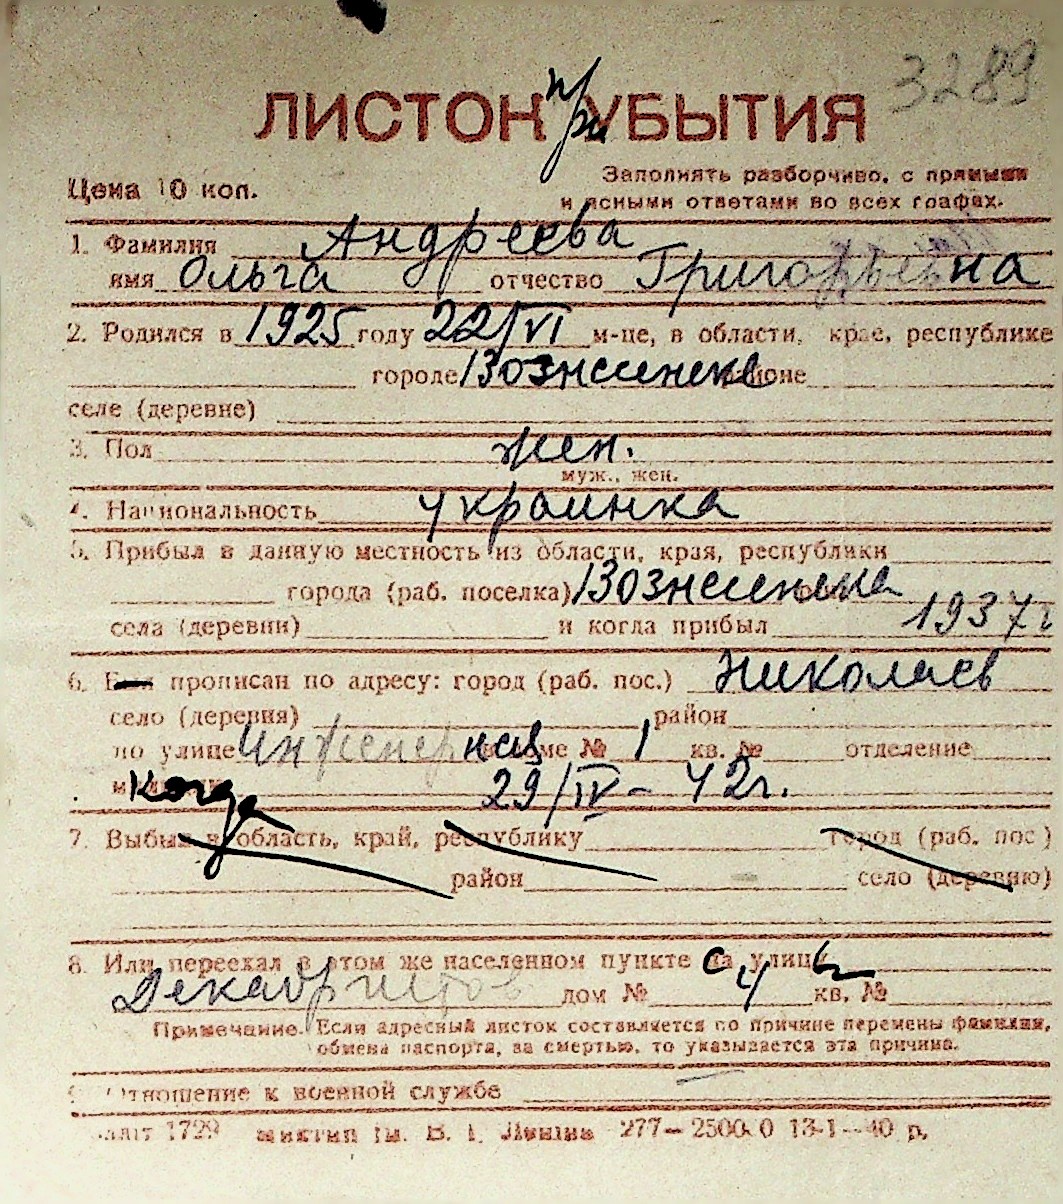 3289
ЛИСТОК при УБЫТИЯ
Цена 10 коп.
Заполнять разборчиво, с прямыми
и ясными ответами во всех графах.
1. Фамилия Андреева
имя Ольга отчество Григорьевна
2. Родился в 1925 году 22/VI м-це, в области, крае, республике
городе Вознесенске районе
селе (деревне)
3. Пол жен.
муж., жен.
4. Национальность украинка
5. Прибыл в данную местность из области, края, республики
города (раб. поселка) Вознесенска
села (деревни) и когда прибыл 1937 г
6. прописан по адресу: город (раб. пос.) Николаев
село (деревня) район
по улице Инженерная доме № 1 кв. № отделение
Когда 29/IV - 42г.
7. Выбыл в область, край, республику город (раб. пос.)
район село (деревню)
8. Или переехал в этом же населенном пункте с улицы
Декабристов дом № 4 кв. №
Примечание. Если адресный листок составляется по причине перемены фамилии,
обмена паспорта, за смертью, то указывается эта причина.
Отношение к военной службе
1729 им. В. И. Ленина 277—2500.0 13-1—40 р.